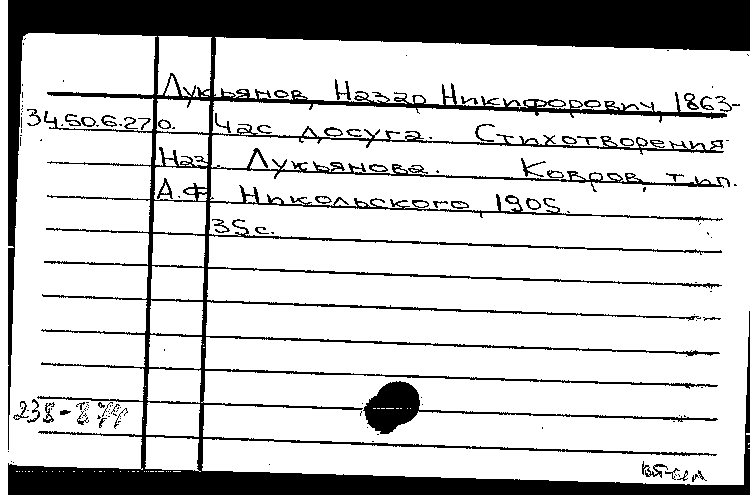 Лукьянов, Назар Никифорович, 1863-
34.60.6.27 о. Час досуга. Стихотворения
Наз. Лукьянова. Ковров, тип.
А.Ф. Никольского, 1905.
35 с.
238-874